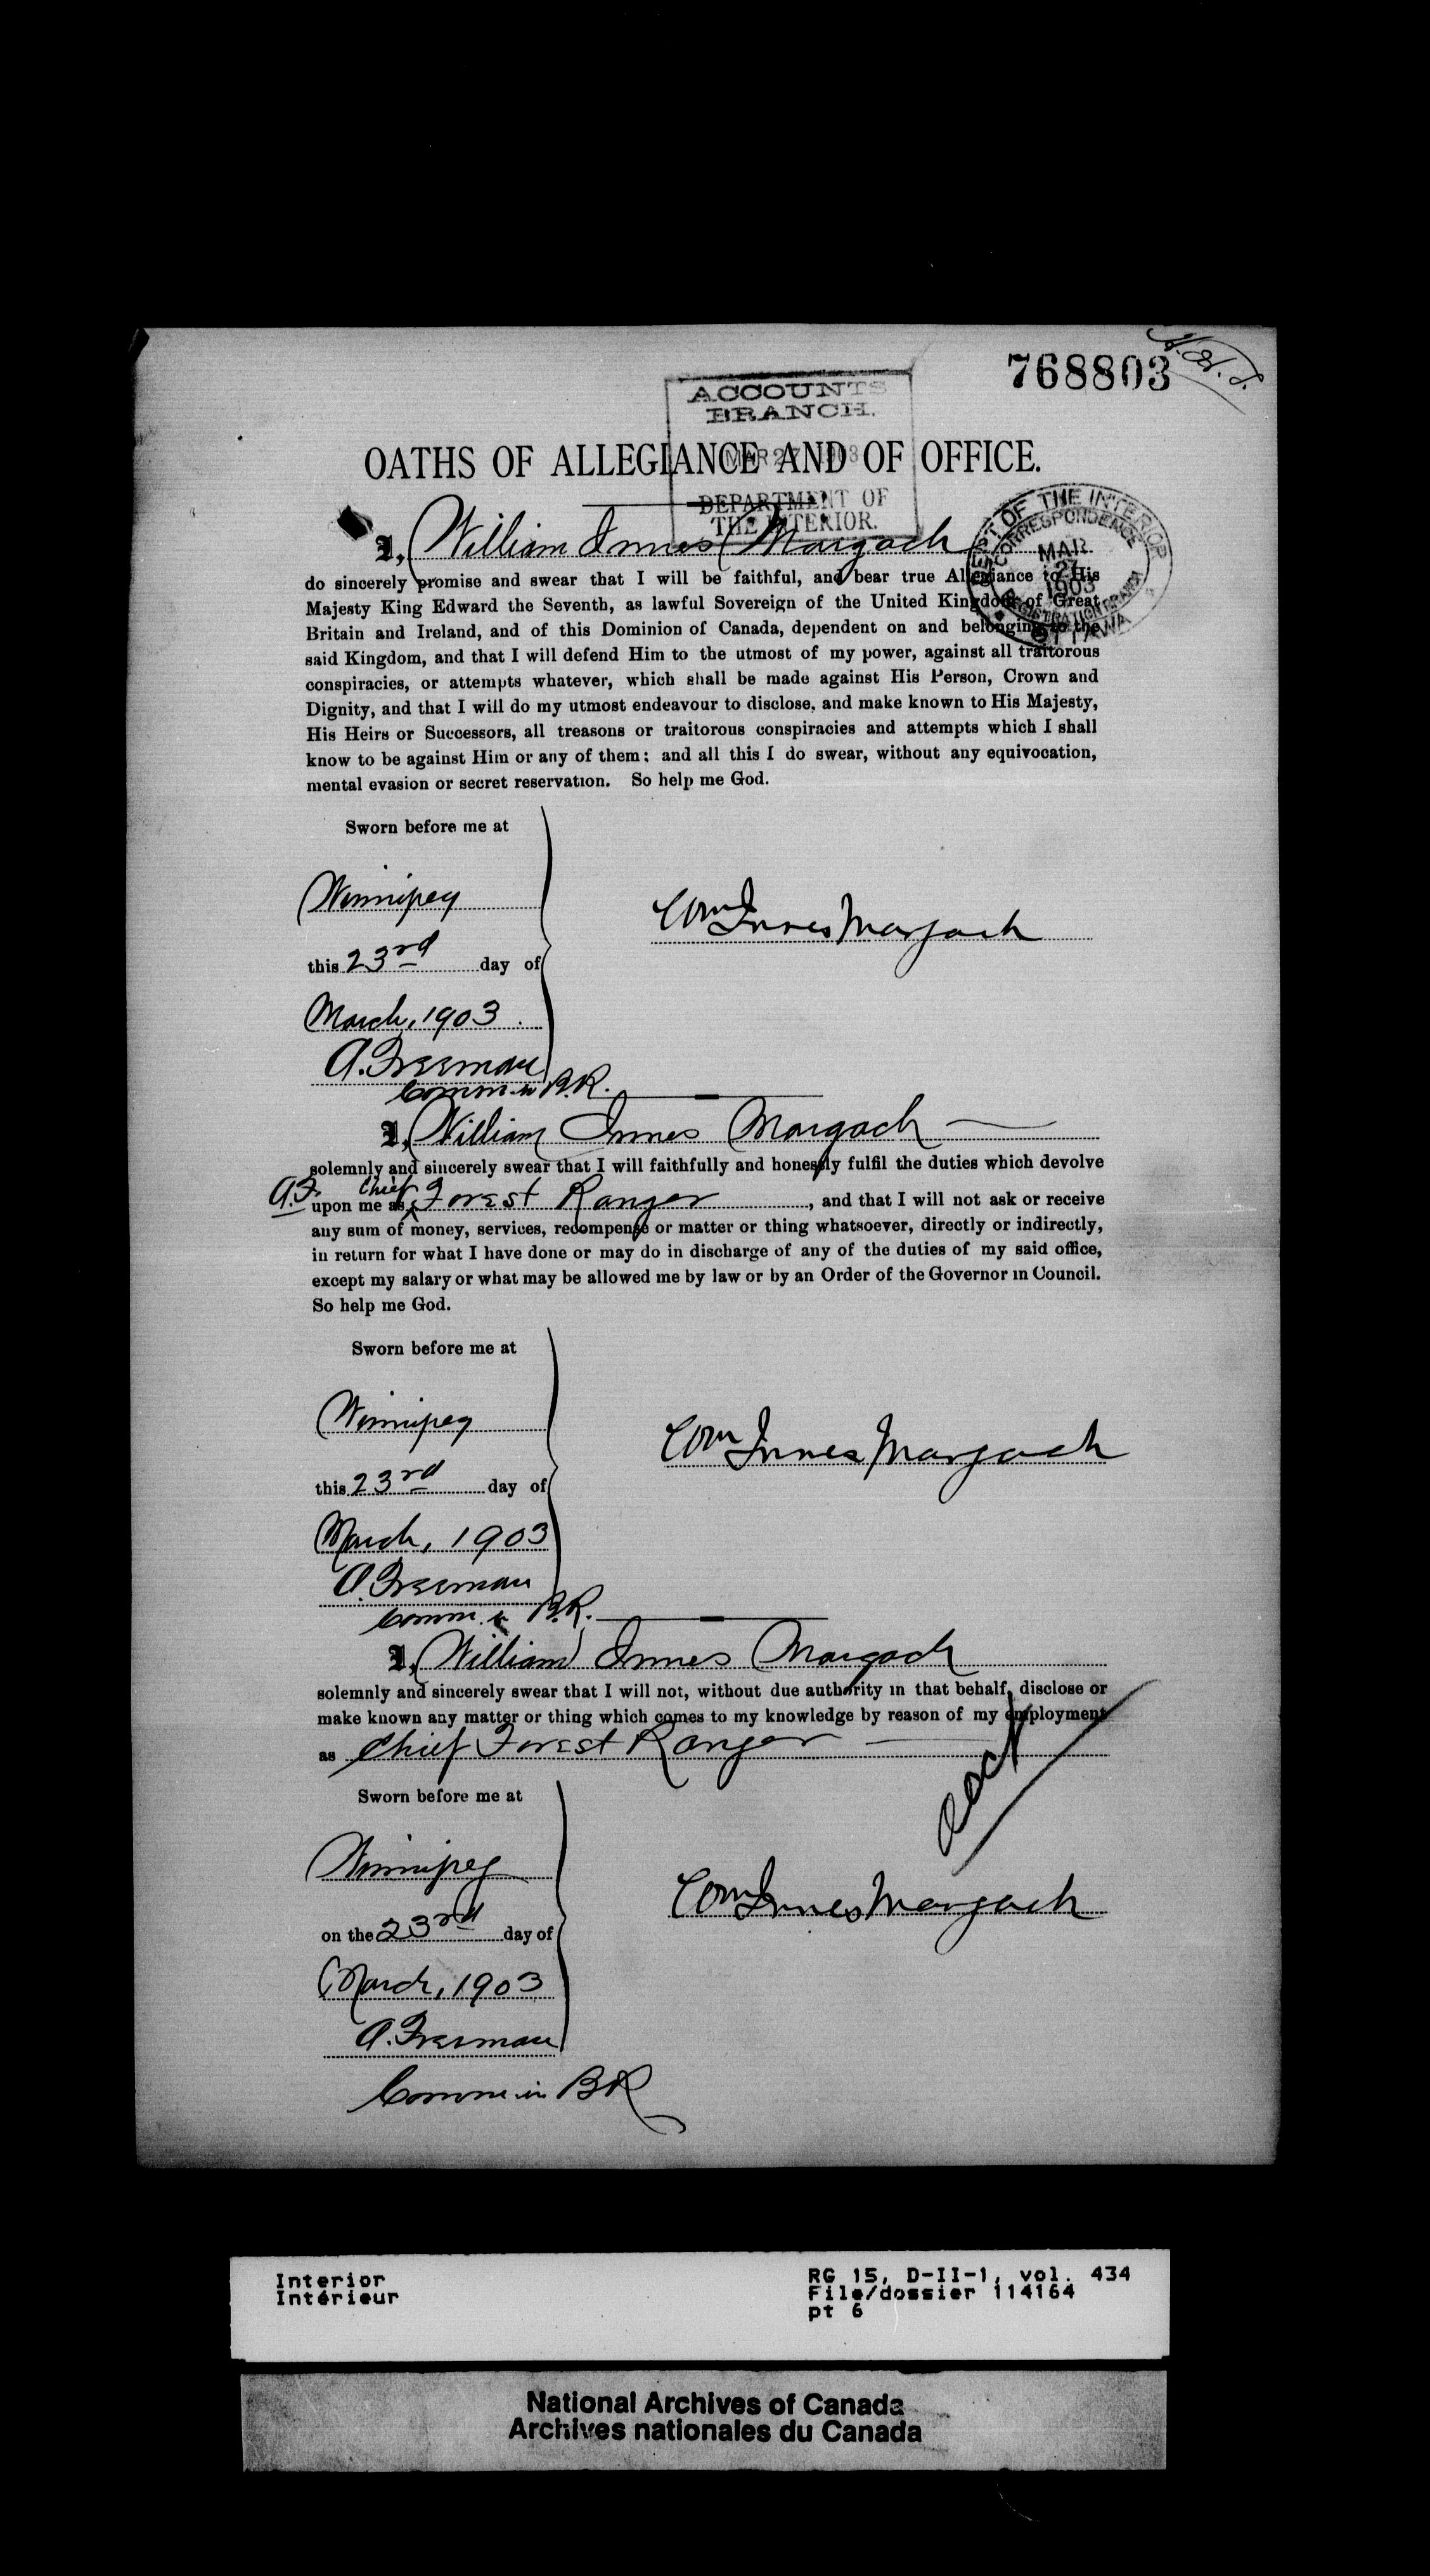 768803
ACCOUNTS
BRANCH.
MAR 27 1903
DEPARTMENT OF
THE INTERIOR.
OATHS OF ALLEGIANCE AND OF OFFICE.
DEPT OF THE INTERIOR
CORRESPONDENCE
MAR
27
1903
REGISTRATION BRANCH
OTTAWA
I, William Innes Margach
do sincerely promise and swear that I will be faithful, and bear true Allegiance to His
Majesty King Edward the Seventh, as lawful Sovereign of the United Kingdom of Great
Britain and Ireland, and of this Dominion of Canada, dependent on and belonging to the
said Kingdom, and that I will defend Him to the utmost of my power, against all traitorous
conspiracies, or attempts whatever, which shall be made against His Person, Crown and
Dignity, and that I will do my utmost endeavour to disclose, and make known to His Majesty,
His Heirs or Successors, all treasons or traitorous conspiracies and attempts which I shall
know to be against Him or any of them; and all this I do swear, without any equivocation,
mental evasion or secret reservation. So help me God.
Sworn before me at
Winnipeg
this 23rd day of
March, 1903
A. Freeman
Comm in B.R.
Wm Innes Margach
I, William Innes Margach
solemnly and sincerely swear that I will faithfully and honestly fulfil the duties which devolve
A.F. upon me as Chief Forest Ranger, and that I will not ask or receive
any sum of money, services, recompense or matter or thing whatsoever, directly or indirectly,
in return for what I have done or may do in discharge of any of the duties of my said office,
except my salary or what may be allowed me by law or by an Order of the Governor in Council.
So help me God.
Sworn before me at
Winnipeg
this 23rd day of
March, 1903
A. Freeman
Comm. in B.R.
Wm Innes Margach
I, William Innes Margach
solemnly and sincerely swear that I will not, without due authority in that behalf, disclose or
make known any matter or thing which comes to my knowledge by reason of my employment
as Chief Forest Ranger
Sworn before me at
Winnipeg
on the 23rd day of
March, 1903
A. Freeman
Comm in BR
Wm Innes Margach
Interior
Intérieur
RG 15, D-II-1, vol. 434
File/dossier 114164
pt 6
National Archives of Canada
Archives nationales du Canada